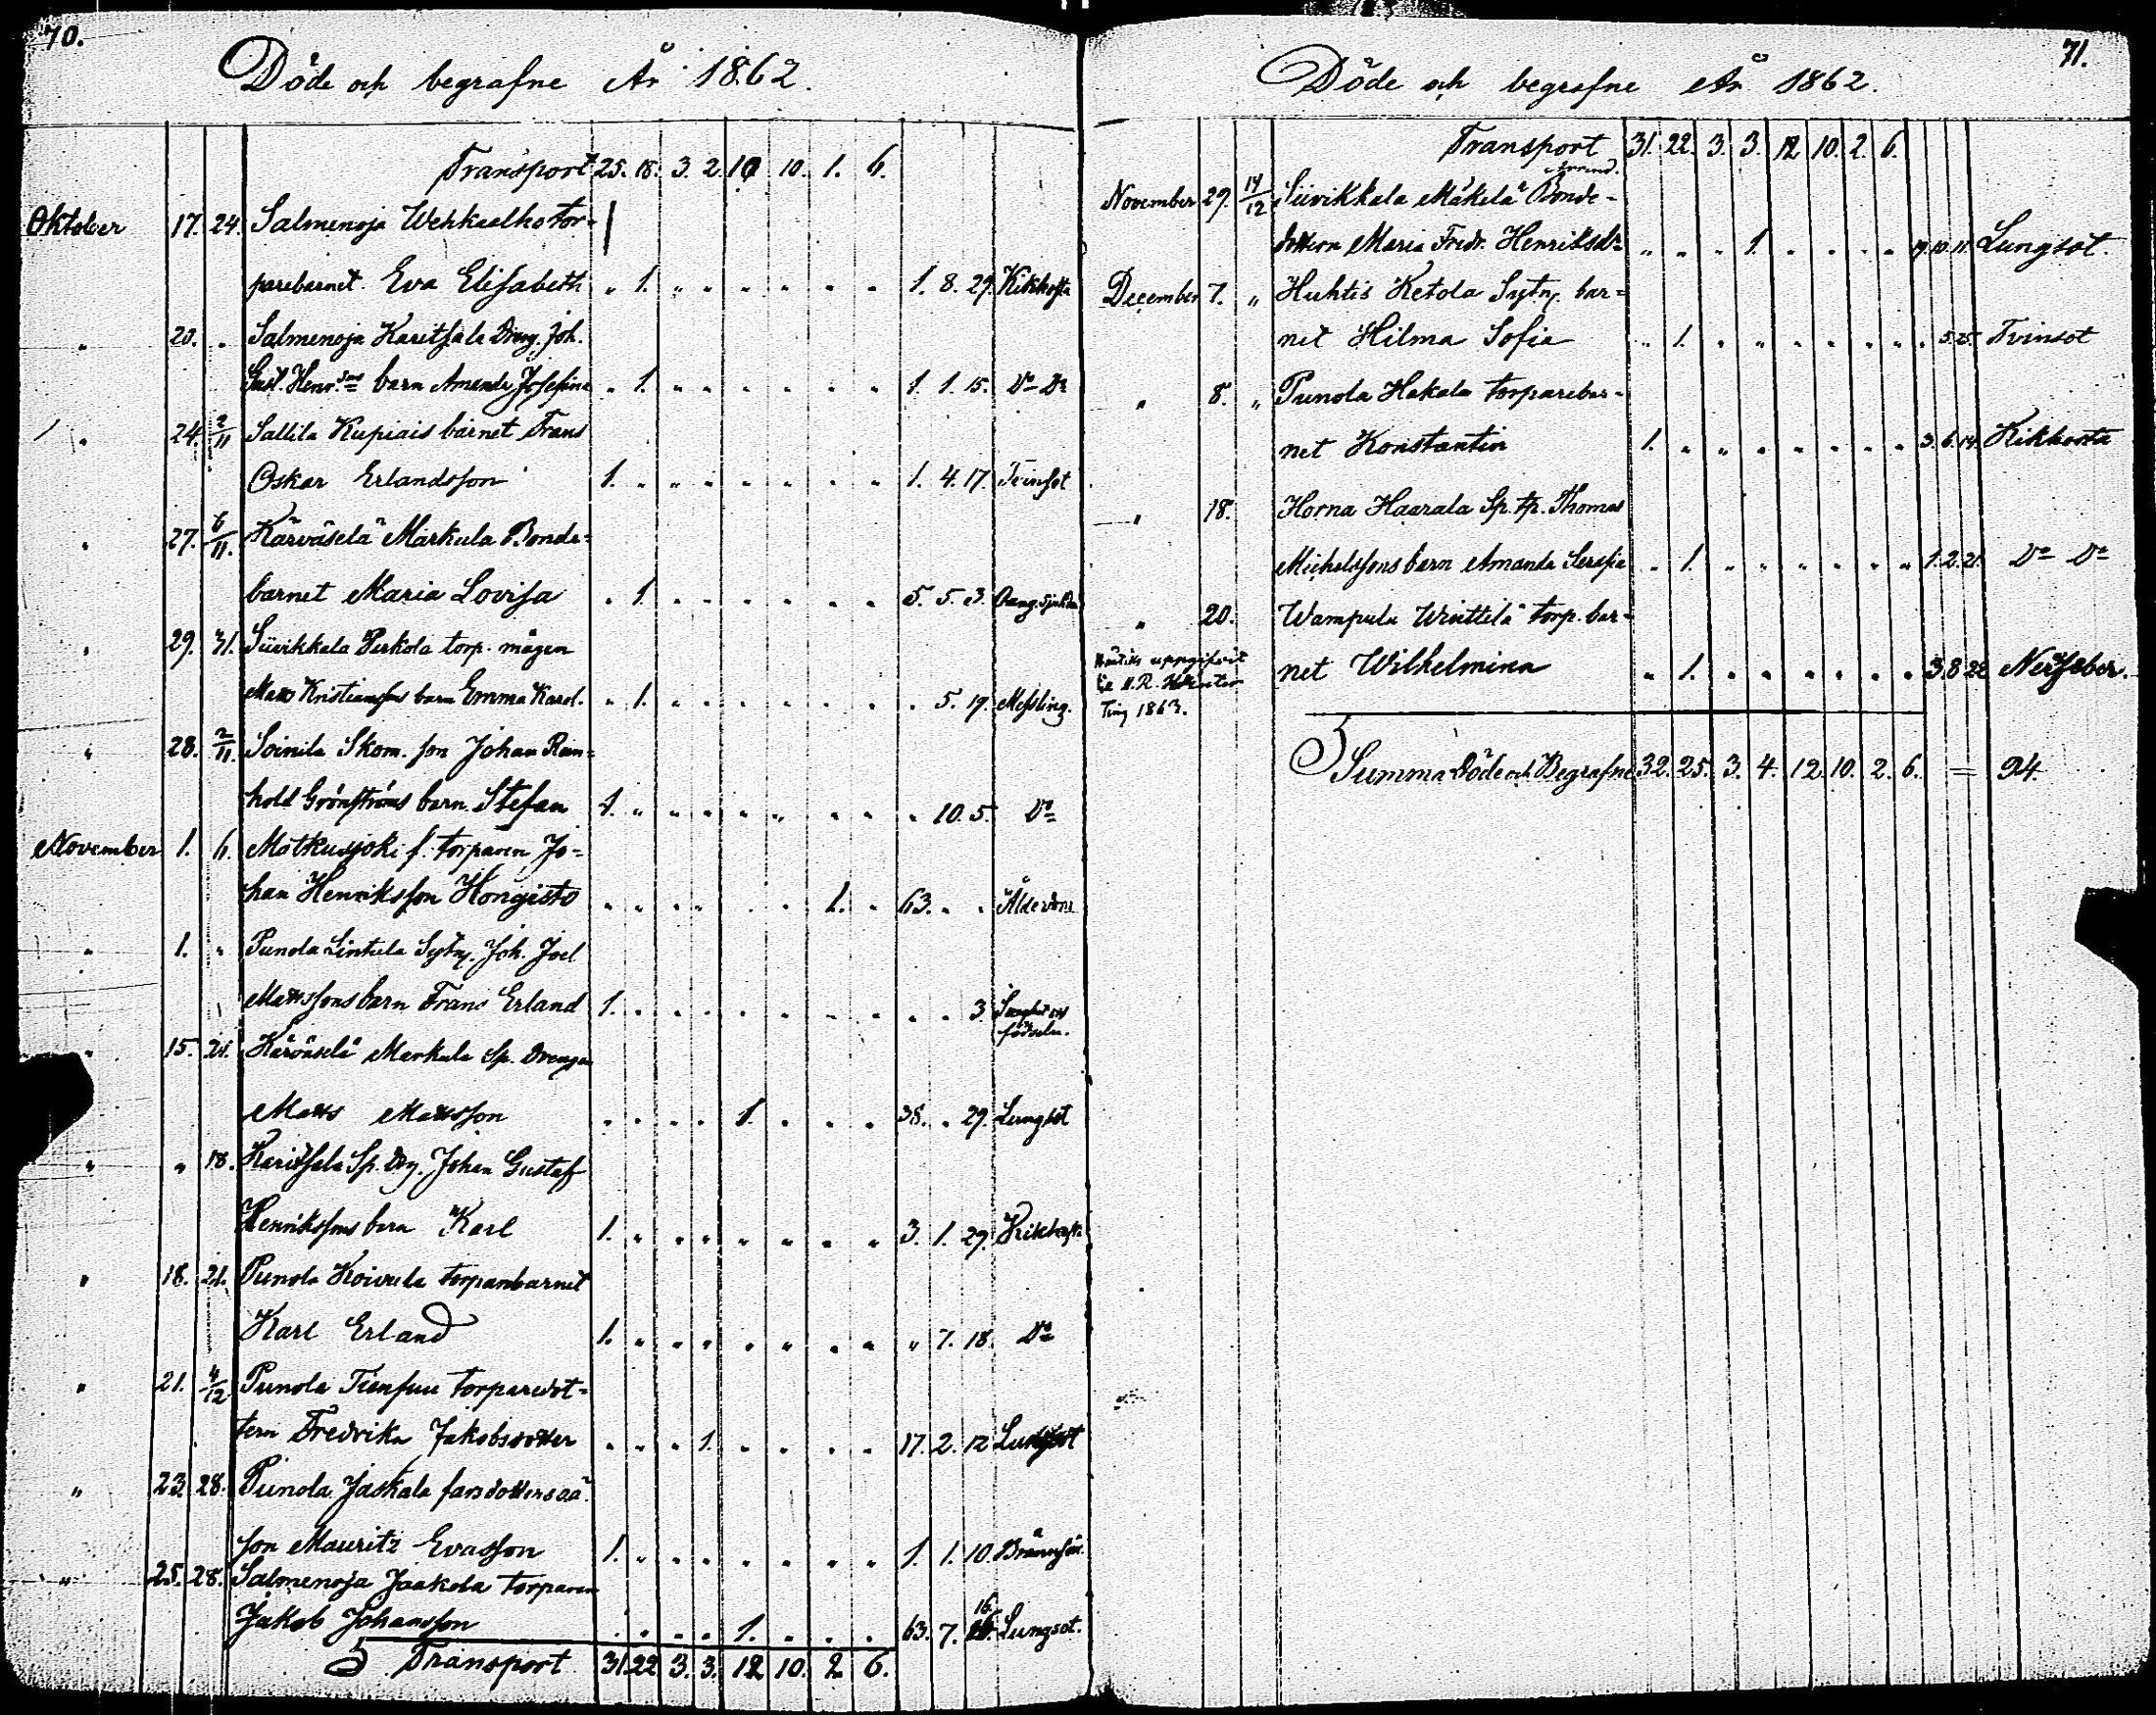 70.
Döde och begrafne År 1862.
Transport 25. 18. 3. 2. 10 10. 1. 6.
Oktober 17. 24. Salmenoja Wehkaalho tor-
parebarnet Eva Elisabeth " 1. " " " " " " 1. 8. 29. Kikhosta
" 20. " Salmenoja Karitsala Dreng. Joh.
Gust. Henr.sons barn Amanda Josefina " 1. " " " " " " 1. 1. 15. Do Do
" 24. 2/11 Sallila Kupiais barnet Frans
Oskar Erlandsson 1. " " " " " " " 1. 4. 17. Tvinsot
" 27. 6/11. Kärväselä Markula Bonde-
barnet Maria Lovisa " 1. " " " " " " 5. 5. 3.
" 29. 31. Siivikkala Perkola torp. mågen
Matts Kristianssons barn Emma Karol. " 1. " " " " " " " 5. 19. Messling.
" 28. 2/11. Soinila Skom. son Johan Rein-
hold Grönströms barn Stefan 1. " " " " " " " " 10. 5. Do
November 1. 6. Mötkusjoki f. torparen Jo-
han Henriksson Hongisto " " " " " " 1. " 63. " " Ålderdom
" 1. " Punola Lintula Sytn. Joh. Joel
Mattssons barn Frans Erland 1. " " " " " " " " " 3.
födseln.
" 15. 21. Kärväselä Markula Sp. Drengen
Matts Mattsson " " " " 1. " " " 38. " 29. Lungsot
" " 18. Karitsala Sp. Drg. Johan Gustaf
Henrikssons barn Karl 1. " " " " " " " 3. 1. 29. Kikhosta
" 18. 21. Punola Koivula torparebarnet
Karl Erland 1. " " " " " " " " 7. 18. Do
" 21. 4/12 Punola Tiensuu torparedot-
tern Fredrika Jakobsdotter " " " 1. " " " " 17. 2. 12 Lungsot
" 23. 28. Punola Jaskala farsdotters oä.
son Mauritz Evasson 1. " " " " " " " 1. 1. 10.
" 25. 28. Salmenoja Jaakola torparen
Jakob Johansson " " " " 1. " " " 63. 7. 16. Lungsot.
Transport 31. 22 3. 3. 12 10. 2 6.
71.
Döde och begrafne År 1862.
Transport 31. 22. 3. 3. 12 10. 2. 6.
November 29. 14/12 Siivikkala Mäkelä Bonde-
dottern Maria Fredr. Henriksdr " " " 1. " " " " 19. 10. 11. Lungsot.
December 7. " Huhtis Ketola Sytn. bar-
net Hilma Sofia " 1. " " " " " " " 5. 25. Tvinsot
" 8. " Punola Hakala torparebar-
net Konstantin 1. " " " " " " " 3. 6. 14. Kikhosta
" 18. Horna Haarala Sp. tp. Thomas
Michelssons barn Amanda Serafia " 1. " " " " " " 1. 2. 21. Do Do
" 20. Wampula Winttilä torp. bar-
net Wilhelmina " 1. " " " " " " 3. 8. 22
uppgifvit
Ting 1863.
Summa Döde och Begrafne 32. 25. 3. 4. 12 10. 2. 6. = 94.